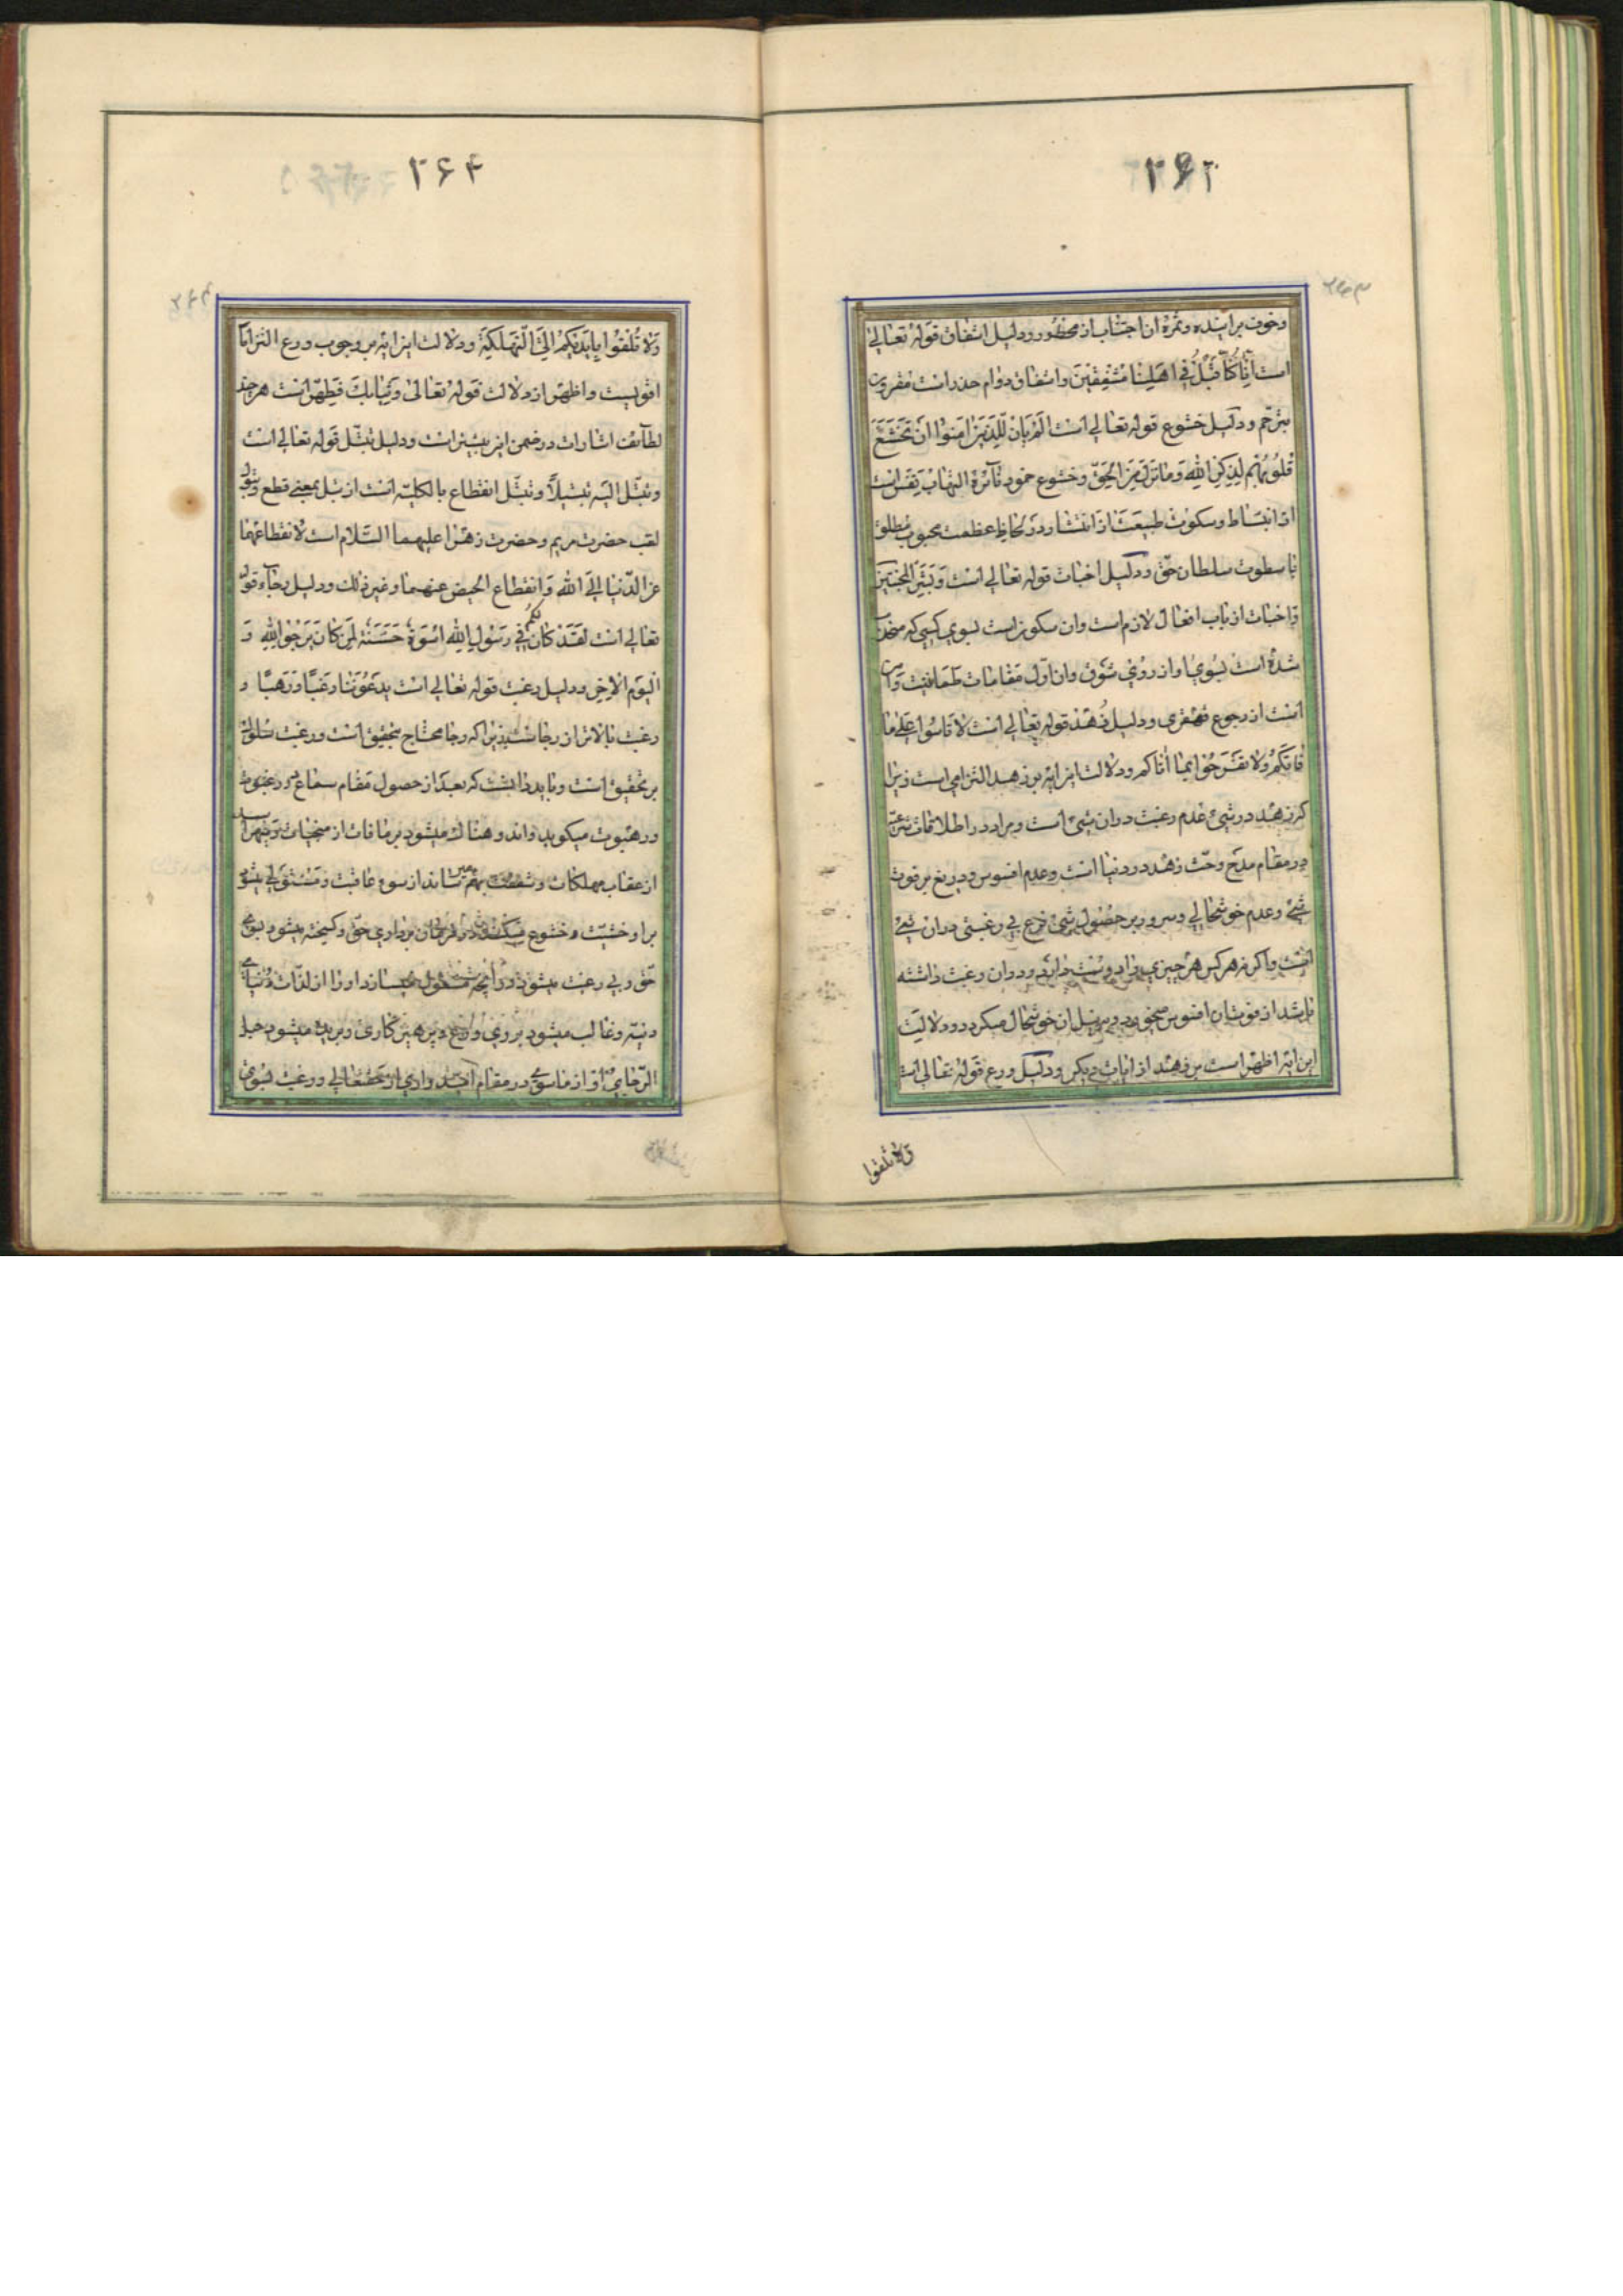 ۲۶۳
وخوف بر آینده وثمرهٔ ان اجتناب از محظور ودلیل اشفاق قوله تعالی
است انا کنا قبل فی اهلنا مشفقین واشفاق دوام حذر است مقرون
بترحم ودلیل خشوع قوله تعالی است الم یان للذین امنوا ان تخشع
قلوبهم لذکر الله وما نزل من الحق وخشوع خمود نآئرهٔ التهاب نفس است
از انبساط وسکوت طبیعت از انتشار ودر لحاظ عظمت محبوب مطلق
با سطوت سلطان حق ودلیل اخبات قوله تعالی است وبشر المخبتین
واخبات از باب افعال لازم است وان سکونست بسوی کسی که منجذب
شده است بسوی او از روی شوق وان اول مقامات طمانینت و
است از رجوع قهقری ودلیل زهد قوله تعالی است لا تاسوا علی ما
فاتکم ولا تفرحوا بما اتاکم ودلالت این ایه بر زهد التزامی است زیرا
که زهد در شیئ عدم رغبت در ان شیئ است ومراد در اطلاقات شرعیه
در مقام مدح وحث زهد در دنیا است وعدم افسوس ودریغ بر فوت
شیئ وعدم خوشحالی وسرور بر حصول شیئ فرع بی رغبتی در ان شیئ
است واگر نه هر کس هر چیزی را دوست دارد ودر ان رغبت داشته
باشد از فوتان افسوس میخورد وبه نیل ان خوشحال میگردد ودلالت
این ایه اظهر است بر زهد از ایات دیگر ودلیل ورع قوله تعالی است
ولا تلقوا
۲۶۴
ولا تلقوا بایدیکم الی التهلکة ودلالت این ایه بر وجوب ورع التزاما
اقویست واظهر از دلالت قوله تعالی وثیابک فطهر است هر چند
لطآئف اشارات در ضمن این بیشتر است ودلیل تبتل قوله تعالی است
وتبتل الیه تبتیلا وتبتل انقطاع بالکلیه است از بتل بمعنی قطع وبتول
لقب حضرت مریم وحضرت زهرا علیهما السلام است لانقطاعهما
عن الدنیا الی الله وانقطاع الحیض عنهما وغیر ذلک ودلیل رجآء قوله
تعالی است لقد کان لکم فی رسول الله اسوة حسنة لمن کان یرجو الله و
الیوم الاخر ودلیل رغبت قوله تعالی است یدعوننا رغبا ورهبا و
رغبت بالاتر از رجاست زیرا که رجا محتاج بتحقیق است ورغبت سلوک
بر تحقیق است وباید دانست که بعد از حصول مقام سماع در رغبوت
ورهبوت میکوید واند وهناک میشود بر مافات از منجیات ومیهراسد
از عقاب مهلکات وشفقت بهم میرساند از سوء عاقبت ومستولی میشود
بر او خشیت وخشوع میکند در فرمان برداری حق وکسیخته میشود بسوی
حق وبی رغبت میشود در آنچه مشغول میسازد او را از لذات دنیای
دنیه وغالب میشود بر وی ورع وپرهیز کاری وبریده میشود حبل
الرجای او از ماسوی در مقام امید واری از حقتعالی ورغبت بسوی